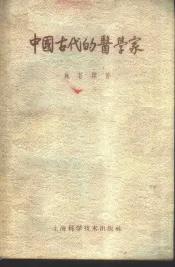 中國古代的醫學家
上海科学技术出版社